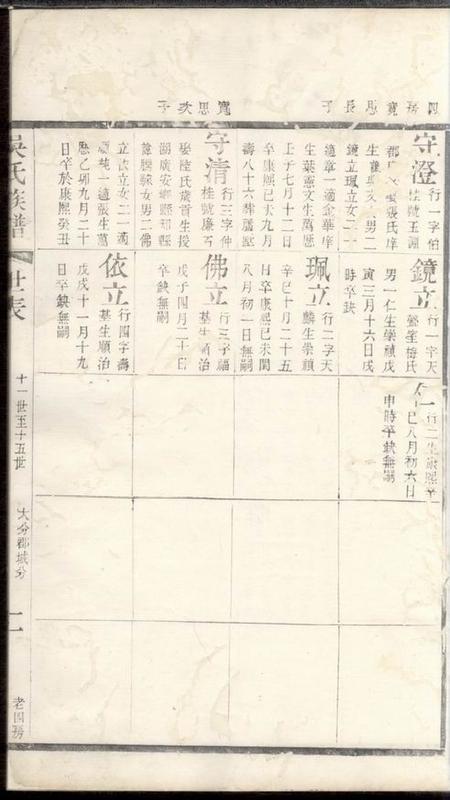 四房寬思長子
寬思次子
守澄 行一字伯
桂號玉淵
張氏庠
男二
鏡立珮立女二
適華一適金華庠
生葉憲文生萬曆
壬子七月十二日
卒康熙己未九月
壽八十六葬蘆墅
守清 行三字仲
桂號廉石
娶陸氏歲貢生授
湖廣安鄉縣知縣
諱騰騄女男二佛
立依立女二一適
顧純一適張生萬
曆乙卯九月二十
日卒於康熙癸丑
鏡立 行一字天
磬室梅氏
男一仁生崇禎戊
寅三月十六日戌
時卒缺
珮立 行二字天
麟生崇禎
辛巳十月二十五
日卒康熙己未閏
八月初一日無嗣
佛立 行三字福
基生順治
戊子四月二十日
卒缺無嗣
依立 行四字壽
基生順治
戊戌十一月十九
日卒缺無嗣
行二生康熙辛
巳八月初六日
申時卒缺無嗣
吳氏族譜
世表
十一世至十五世
大分郡城分
二
老四房